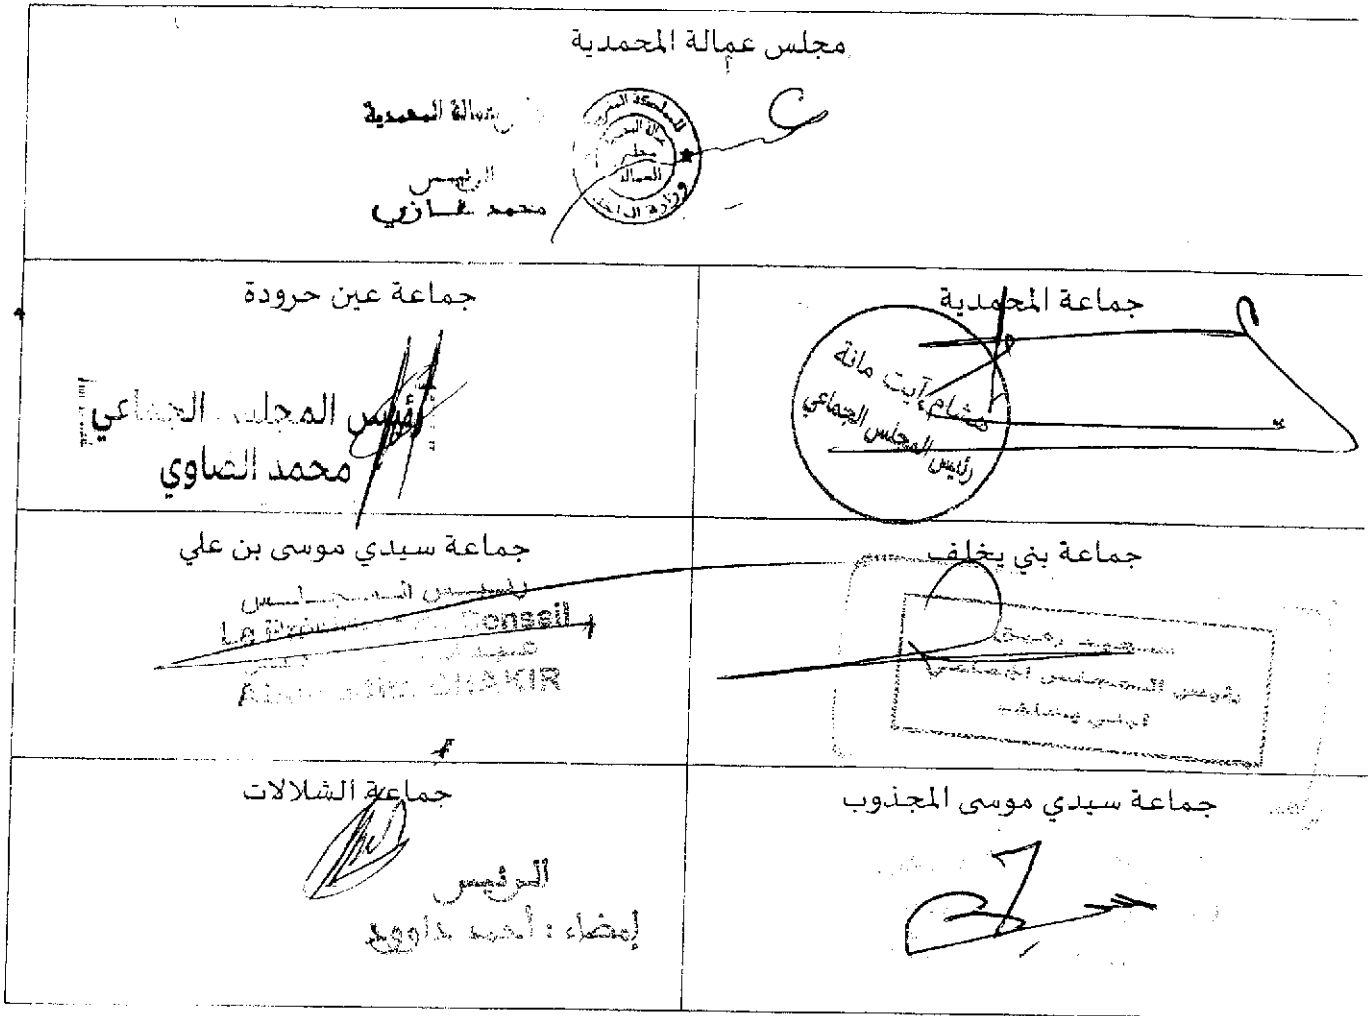 مجلس عمالة المحمدية
عمالة المحمدية
الرئيس
محمد غازي
المملكة المغربية
وزارة الداخلية
مجلس
العمالة
جماعة المحمدية
هشام آيت مانة
رئيس المجلس الجماعي
جماعة عين حرودة
رئيس المجلس الجماعي
محمد الضاوي
جماعة بني يخلف
رئيس المجلس الجماعي
لبني يخلف
جماعة سيدي موسى بن علي
رئيس المجلس
Le Président du Conseil
CHAKIR
جماعة سيدي موسى المجذوب
جماعة الشلالات
الرئيس
إمضاء : أحمد داوود